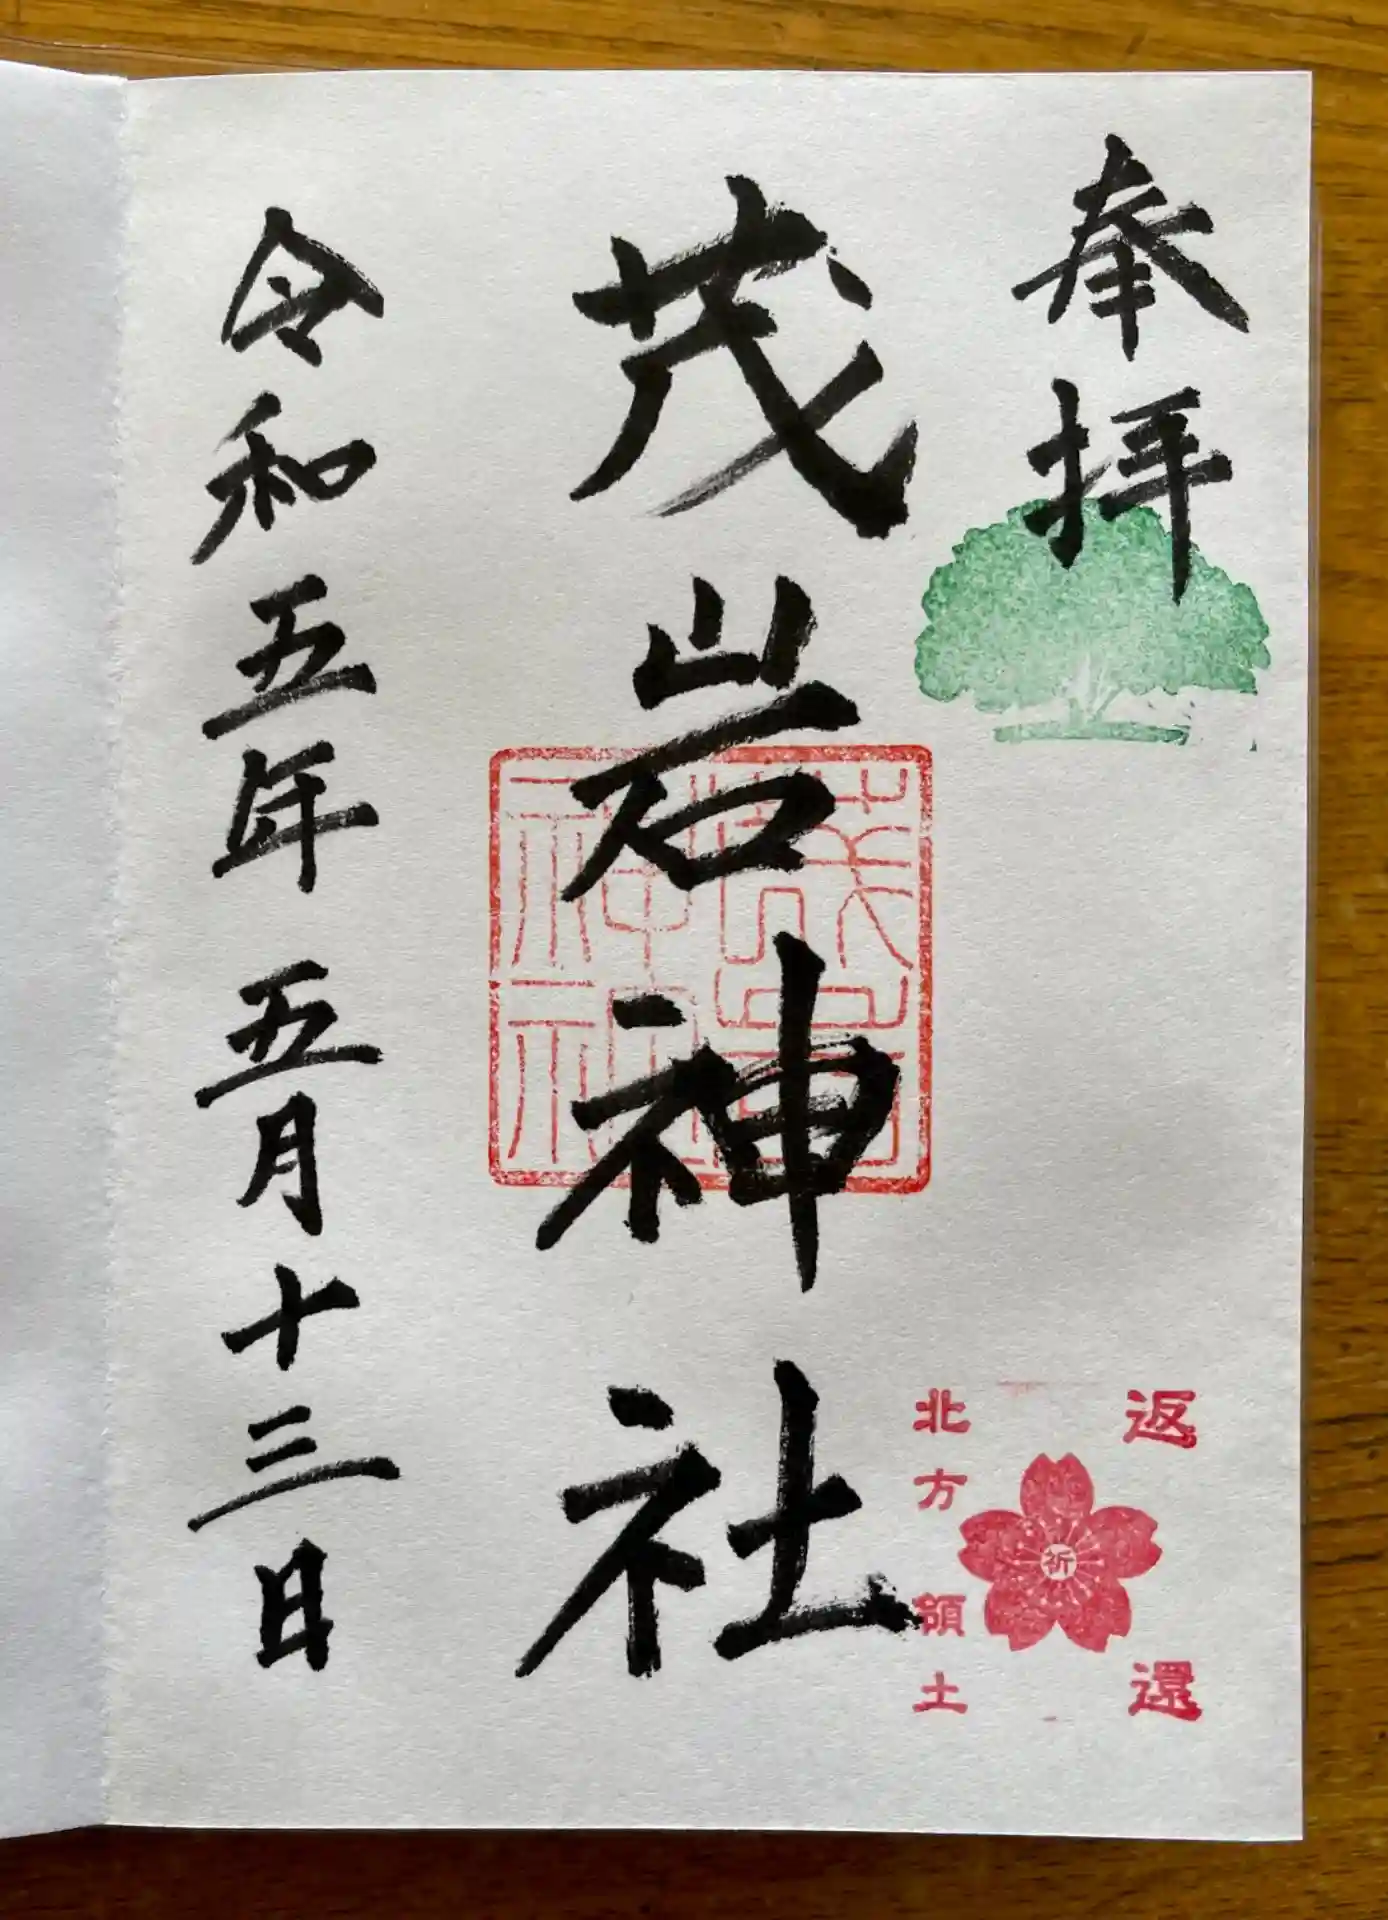 奉拝
茂岩神社
茂岩神社
令和五年 五月十三日
返還
祈
北方領土